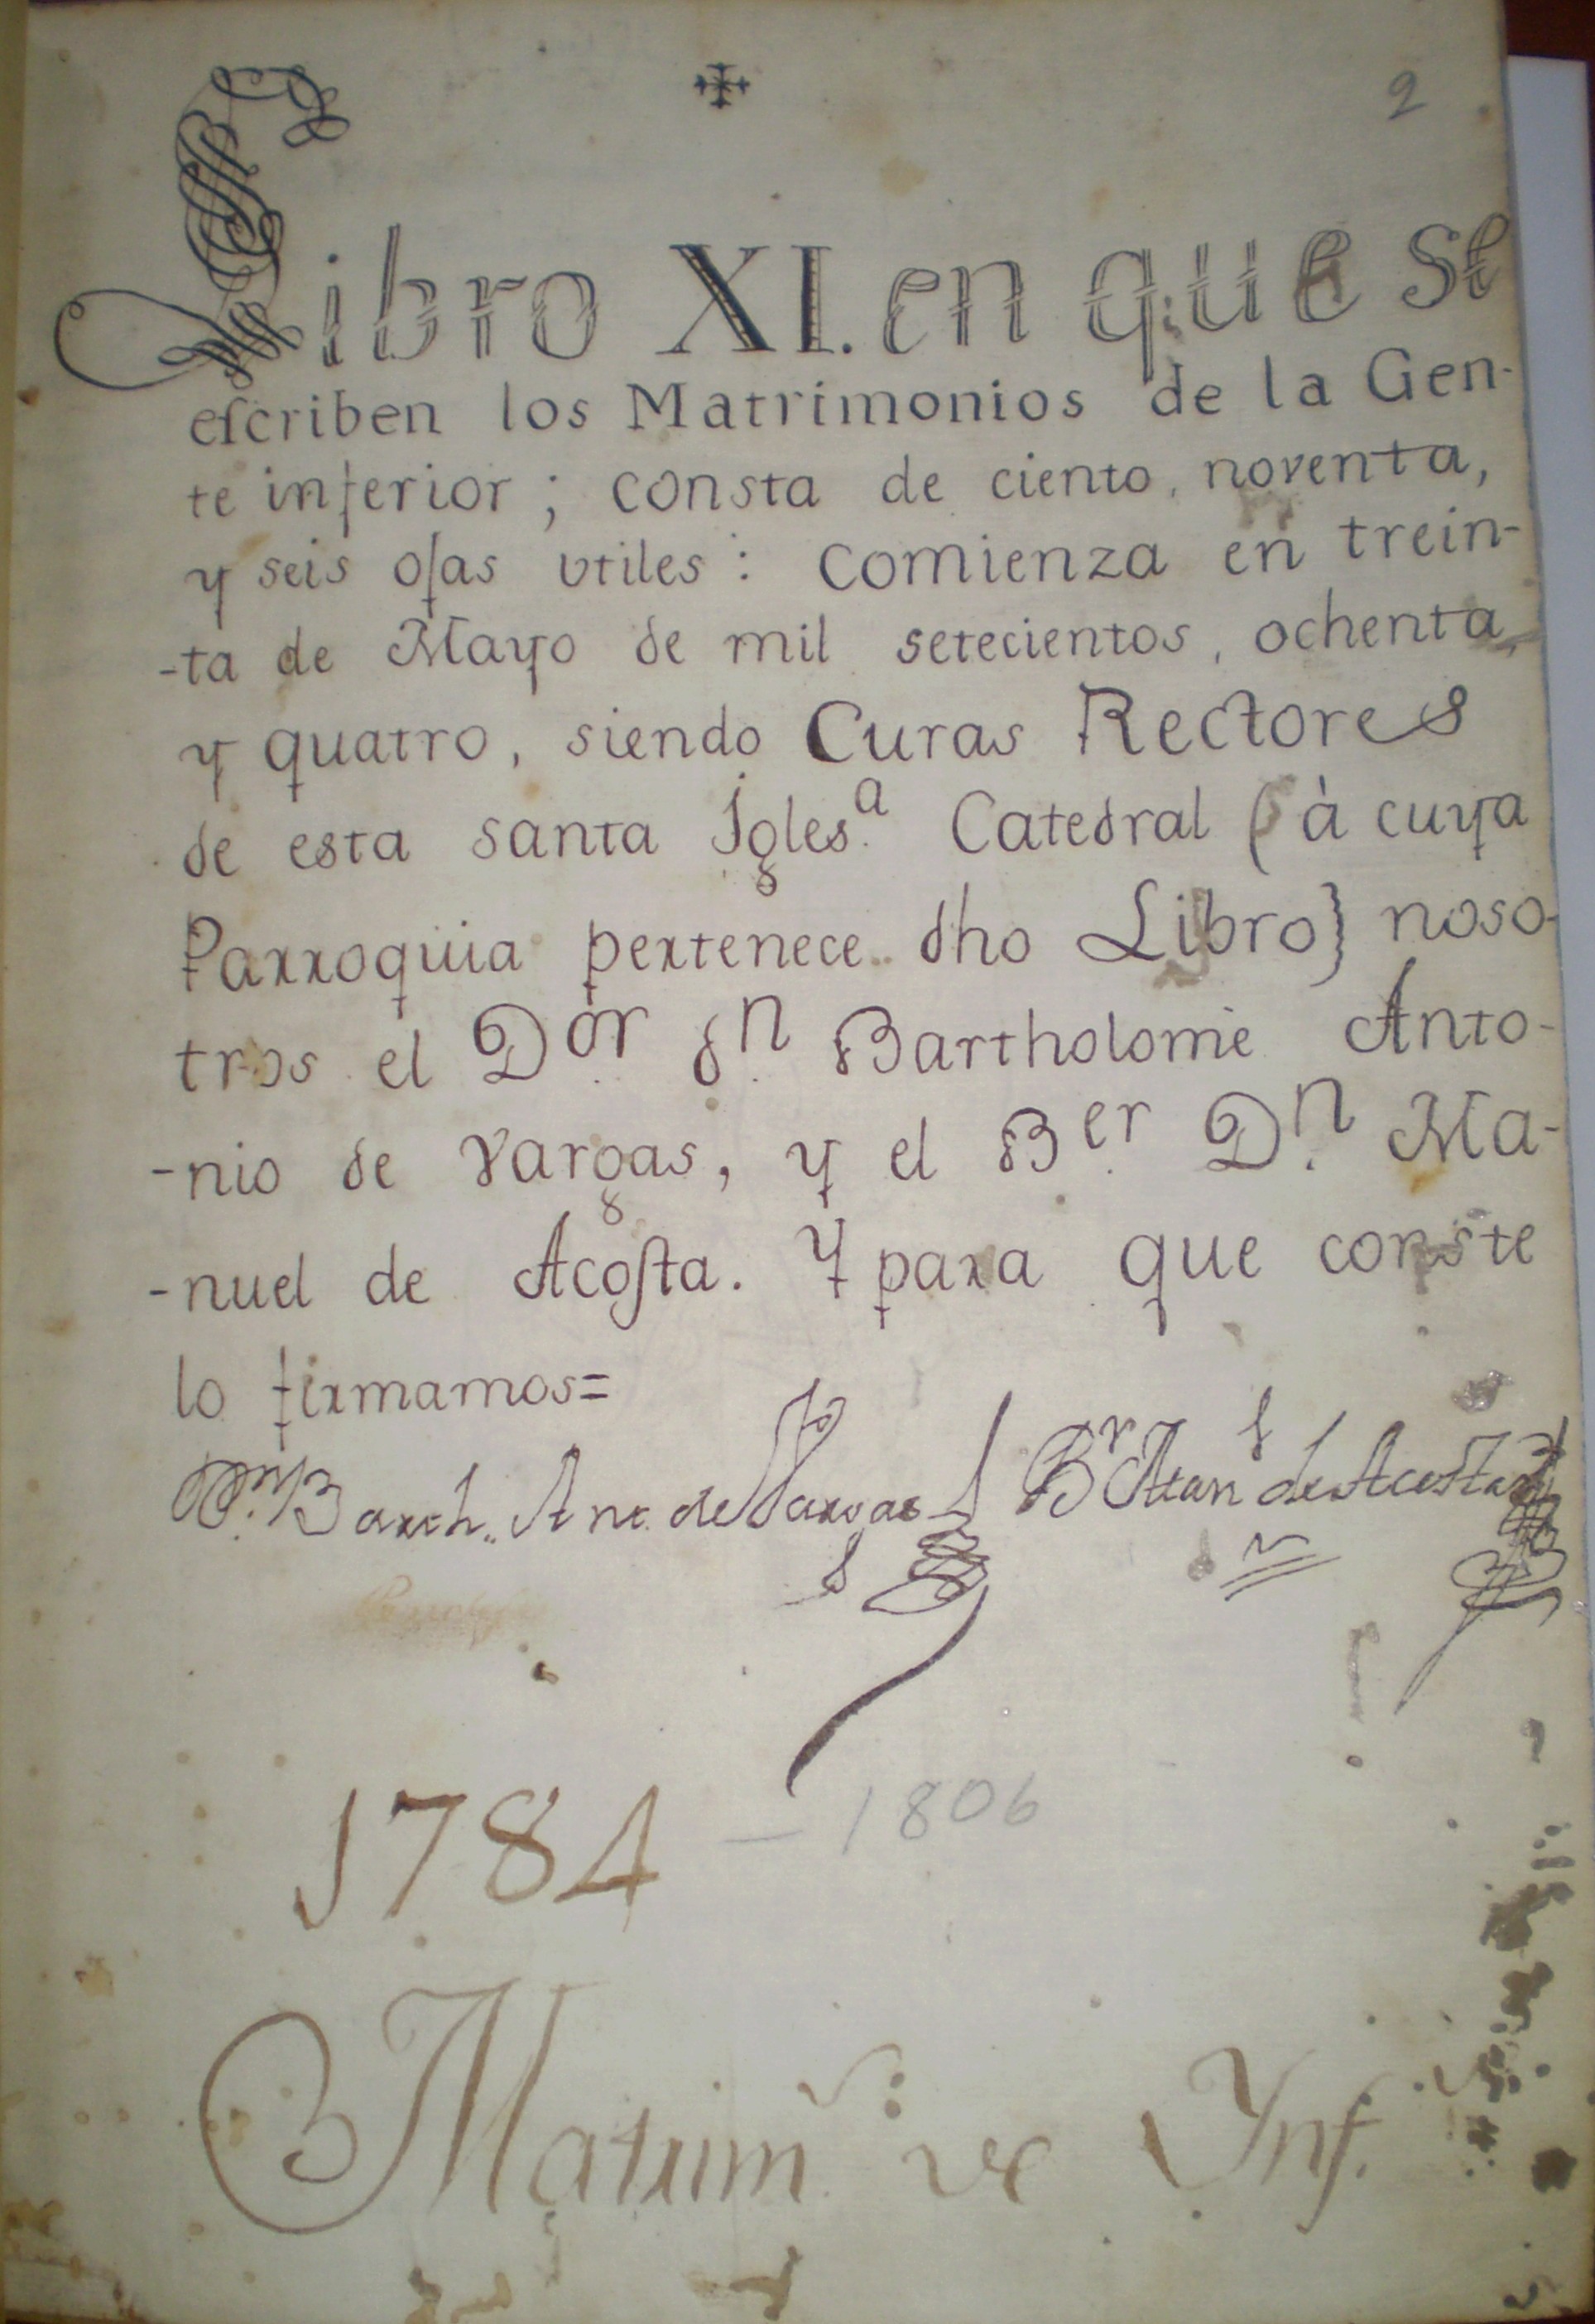 2
Libro XI. en que se
eſcriben los Matrimonios de la Gen-
te inferior; consta de ciento, noventa,
y seis ojas vtiles: comienza en trein-
-ta de Mayo de mil setecientos, ochenta,
y quatro, siendo Curas Rectores
de esta santa Igles.ª Catedral (à cuya
Parroquia pertenece dho Libro} noso-
tros el D.or d.n Bartholome Anto-
-nio de Vargas, y el B.er D.n Ma-
-nuel de Acoſta. Y para que conste
lo firmamos=
D.r Barth. Ant. de Vargas B.r Man.l de Acosta
1784 – 1806
Matrim.s de Ynf.s